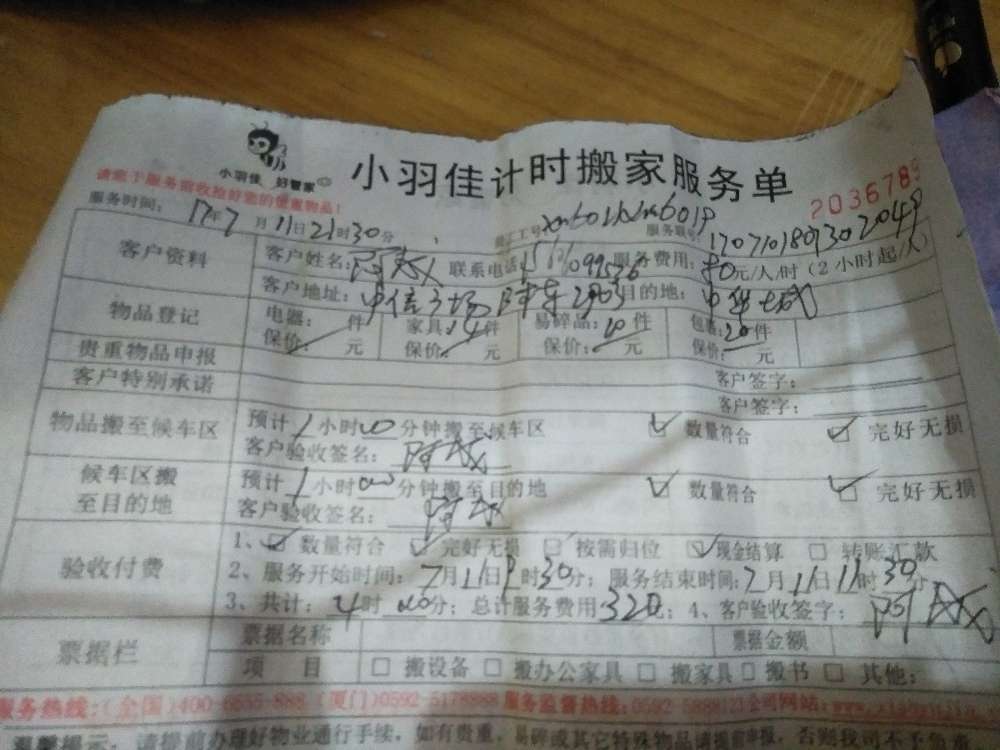 小羽佳 好管家
小羽佳计时搬家服务单
请您于服务前收拾好您的贵重物品!
203678
服务时间: 17年7月11日21时30分 工号 服务账号:
客户资料 客户姓名: 联系电话: 服务费用: 80元/人/时(2小时起/人)
客户地址: 中信广场 2903 目的地: 中华城
物品登记 电器: 件 家具: 件 易碎品: 10件 包裹: 20件
保价: 元 保价: 元 保价: 元 保价: 元
贵重物品申报 客户签字:
客户特别承诺 客户签字:
物品搬至候车区 预计1小时00分钟搬至候车区 数量符合 完好无损
客户验收签名:
候车区搬至目的地 预计1小时00分钟搬至目的地 数量符合 完好无损
客户验收签名:
验收付费 1、数量符合 完好无损 按需归位 现金结算 转账汇款
2、服务开始时间: 7月11日9时30分; 服务结束时间: 7月11日11时30分
3、共计: 4时00分; 总计服务费用320; 4、客户验收签字:
票据栏 票据名称 票据金额
项目 搬设备 搬办公家具 搬家具 搬书 其他:
服务热线:(全国)400-6555-888 (厦门)0592-5178888 服务监督热线:0592-5888123 公司网站:
温馨提示: 请提前办理好物业进行手续,如有贵重、易碎或其它特殊物品请提前申报,否则我司不予